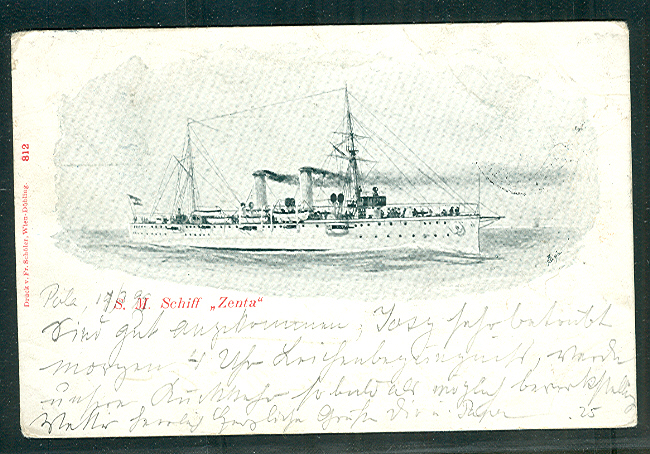 812
Druck v. Fr. Schöler, Wien-Döbling.
S. M. Schiff „Zenta“
Pola
Sind gut angekommen, Josy sehr betrübt
morgen 4 Uhr Leichenbegängniss, werde
unsere Rückkehr sobald als möglich bewerkstellig
Wetter herrlich Herzliche Grüße Dir u. Papa
25